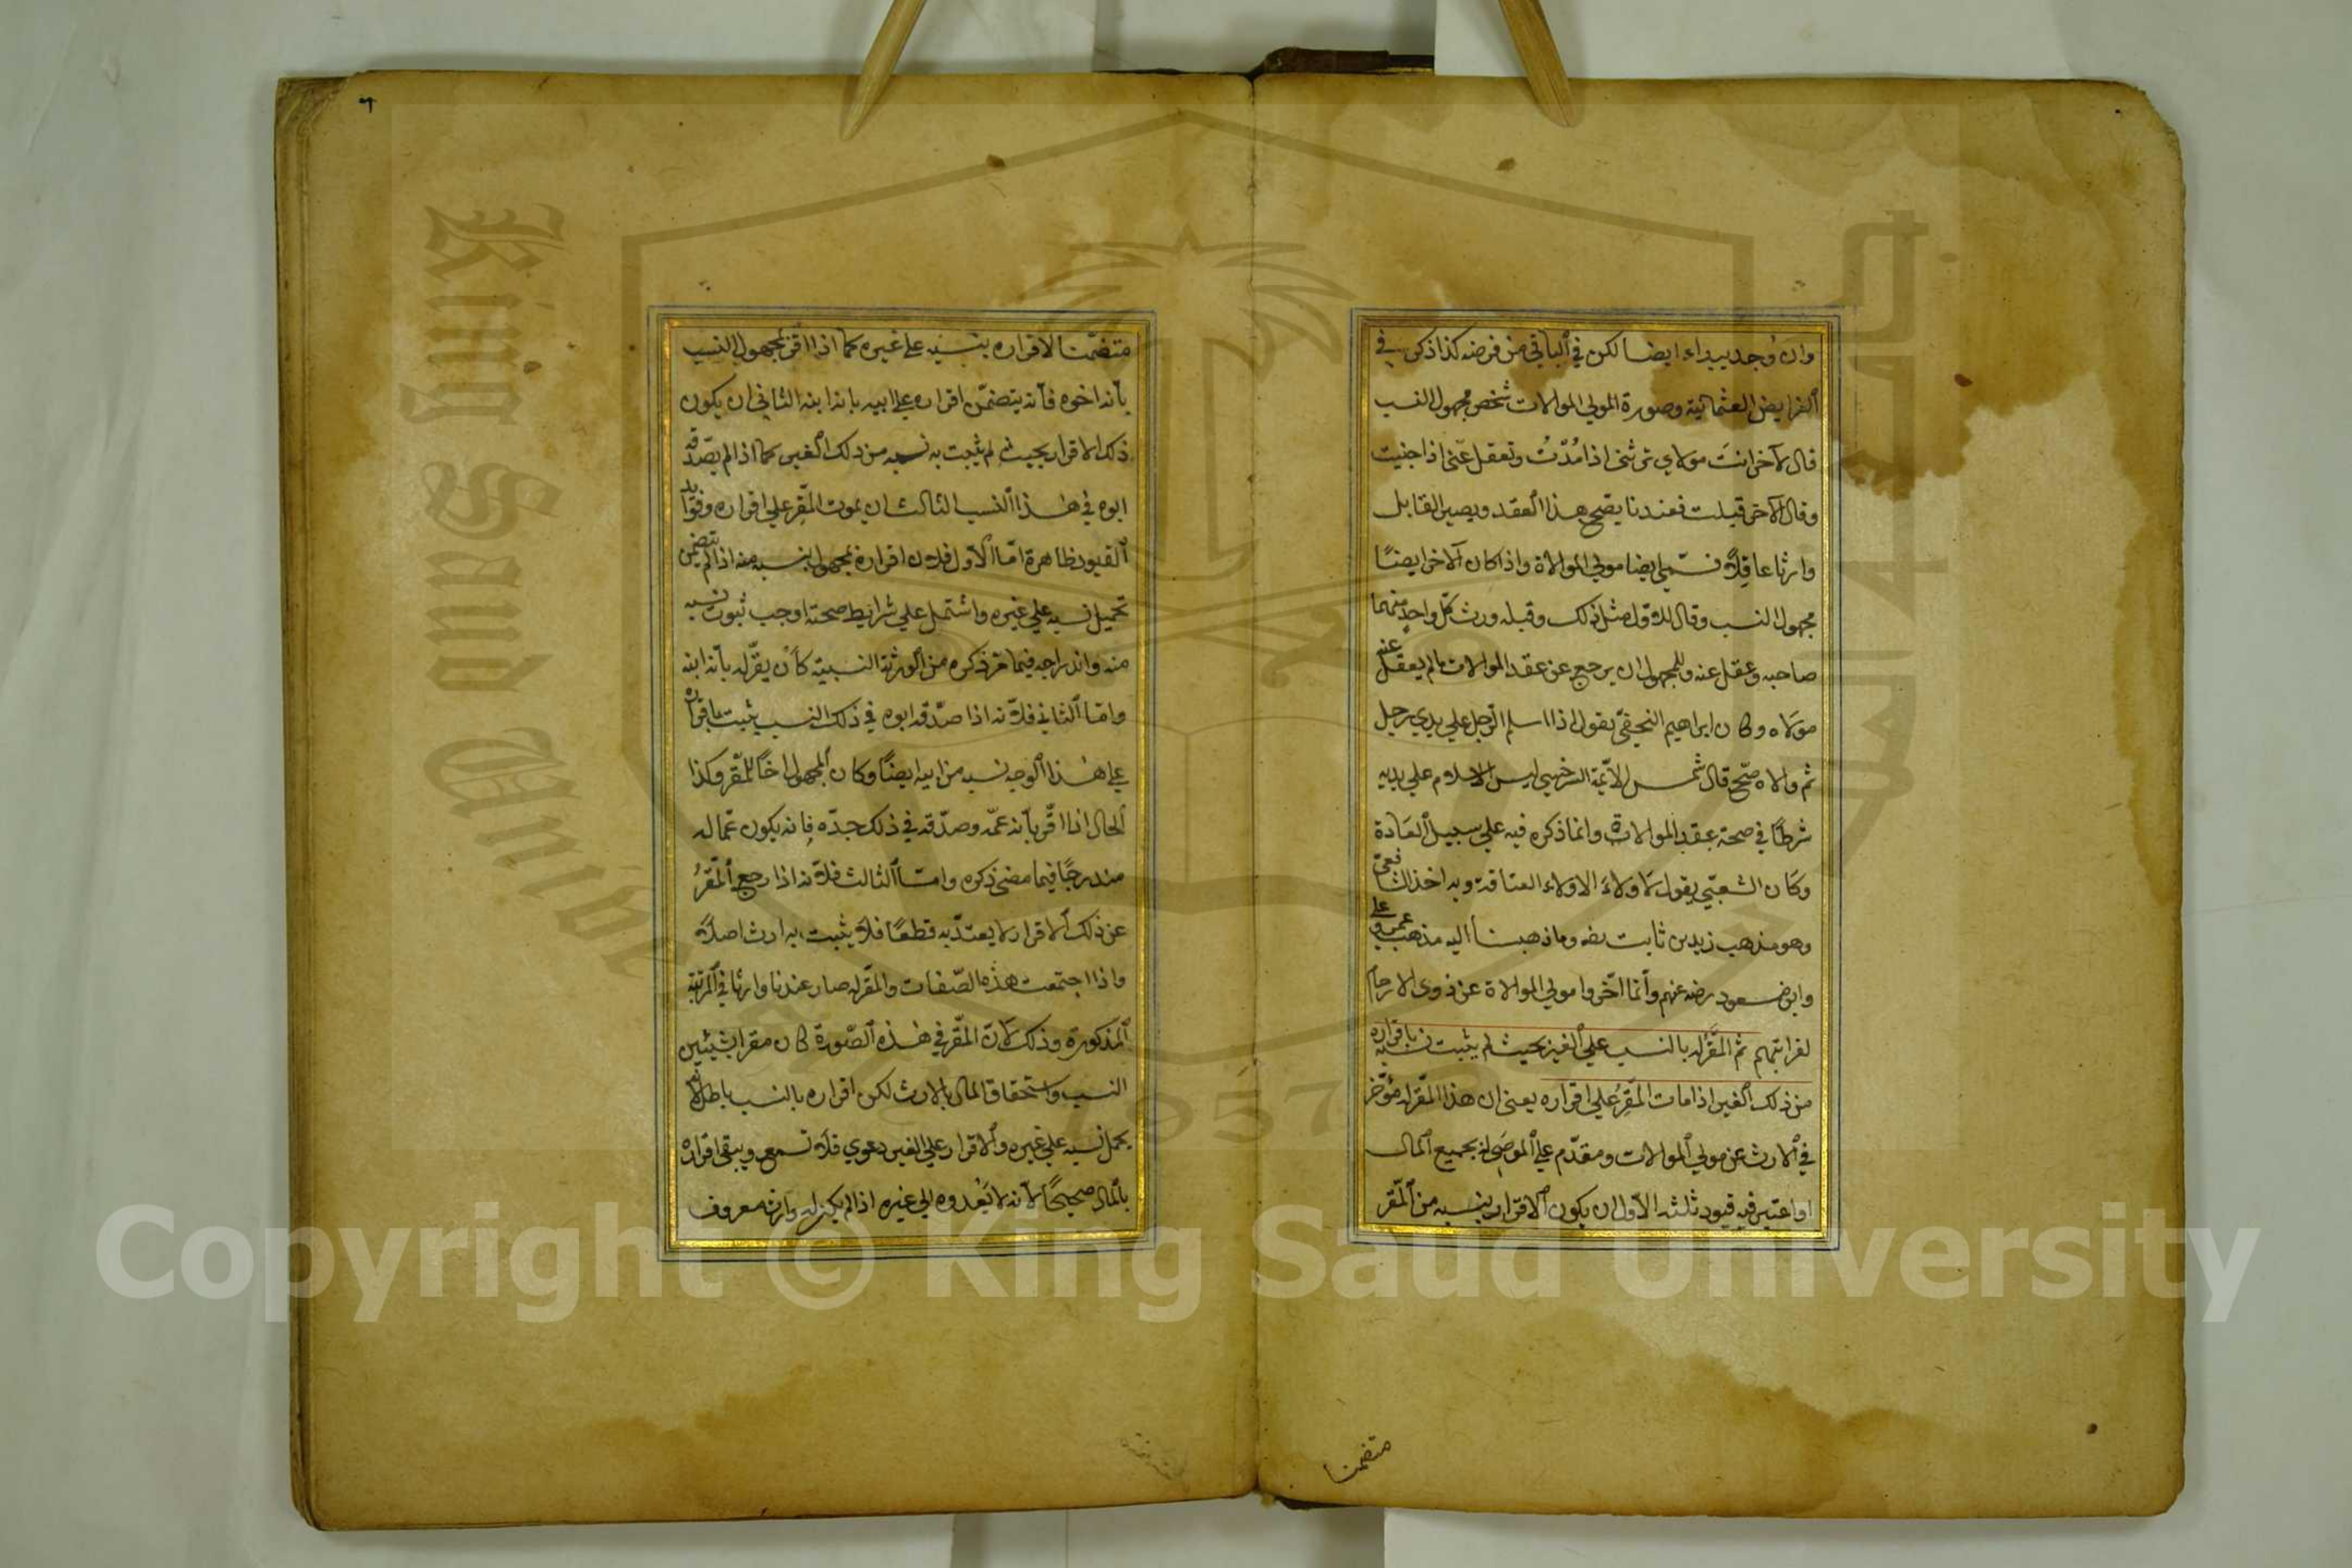 وان وُجد يبداء ايضا لكن في الباقي من فرضه كذا ذكر في
الفرايض العثمانية وصورة المولي الموالات شخص مجهول النسب
قال لآخر انتَ مولاي ترثني اذا مُتّ وتعقل عنّي اذا جنيت
وقال الآخر قبلت فعندنا يصحّ هذا العقد ويصير القابل
وارثا عاقلًا فسمّي ايضا مولي الموالاة واذا كان الآخر ايضًا
مجهول النسب وقال للاوّل مثل ذلك وقبله ورث كلّ واحدٍ منهما
صاحبه وعقل عنه وللمجهول ان يرجع عن عقد الموالات مالم يعقل عنه
مولاه وكان ابراهيم النخعيّ يقول اذا اسلم الرّجل علي يدي رجل
ثم والاه صحّ قال شمس الائمّة السرخسي ليس الاسلام علي يديه
شرطًا في صحة عقد الموالاة وانما ذكره فيه علي سبيل العَادة
وكان الشعبيّ يقول لا ولاءَ الا ولاء العتاقة وبه اخذ الشافعيّ
وهو مذهب زيد بن ثابت رضه وما ذهبنا اليه مذهب عمر وعلي
وابن مسعود رضه عنهم وأنما اخّروا مولي الموالاة عن ذوى الارحام
لقرابتهم ثم المُقَرّ له بالنسب علي الغير بحيث لم يثبت نسبه باقراره
من ذلك الغير اذا مات المُقِرُ علي اقراره يعني ان هذا المقّر له مؤخّر
في الارث عن مولي الموالات ومقدّم علي الموصَي له بجميع المال
اواعتبر فيه قيود ثلثه الاوّل ان يكون الاقرار بنسبه من المقّر
متضمنا
متضمّنا لاقراره بنسبه علي غيره كما اذا اقرّ لمجهول النسب
بأنه اخوه فأنه يتضمّن اقراره علي ابيه بانه ابنه الثاني ان يكون
ذلك الاقرار بحيث لم يثبت به نسبه من ذلك الغير كما اذا لم يصّدقه
ابوه في هذا النسب الثالث ان يموت المقِّر علي اقراره وفوايد
القيود ظاهرة امّا الاوّل فلان اقراره لمجهول بنسبه منه اذا لم يتضمن
تحميل نسبه علي غيره واشتمل علي شرايط صحته اوجب ثبوت نسبه
منه واندراجه فيما مّر ذكره من الورثة النسبية كأن يقرّ له بأنه ابنه
وامّا الثاني فلأنه اذا صدّقه ابوه في ذلك النسب يثبت باقراره
علي هذا الوجه نسبه من ابيه ايضًا وكان المجهول اخًا للمقّر وكذا
الحال اذا اقّر بأنه عمّه وصدّقه في ذلك جدّه فإنه يكون عمّا له
مندرجًا فيما مضي ذكره وامّا الثالث فلأنه اذا رجع المقّرُ
عن ذلك الاقرار لا يعتدّ به قطعًا فلا يثبت به ارث اصلًا
واذا اجتمعت هذه الصّفات والمقّر له صار عندنا وارثا في المرتبة
المذكورة وذلك لانّ المقّر في هذه الصّورة كان مقرا بشيئين
النسب واستحقاق المال بالارث لكن اقراره بالنسب باطل لانه
يحمل نسبه علي غيره والاقرار علي الغير دعوي فلا تسمع ويبقي اقراره
بالمال صحيحًا لأنه لا يَعْدوه الي غيره اذا لم يكن له وارث معروف
King Saud Unive
1957
Copyright © King Saud University